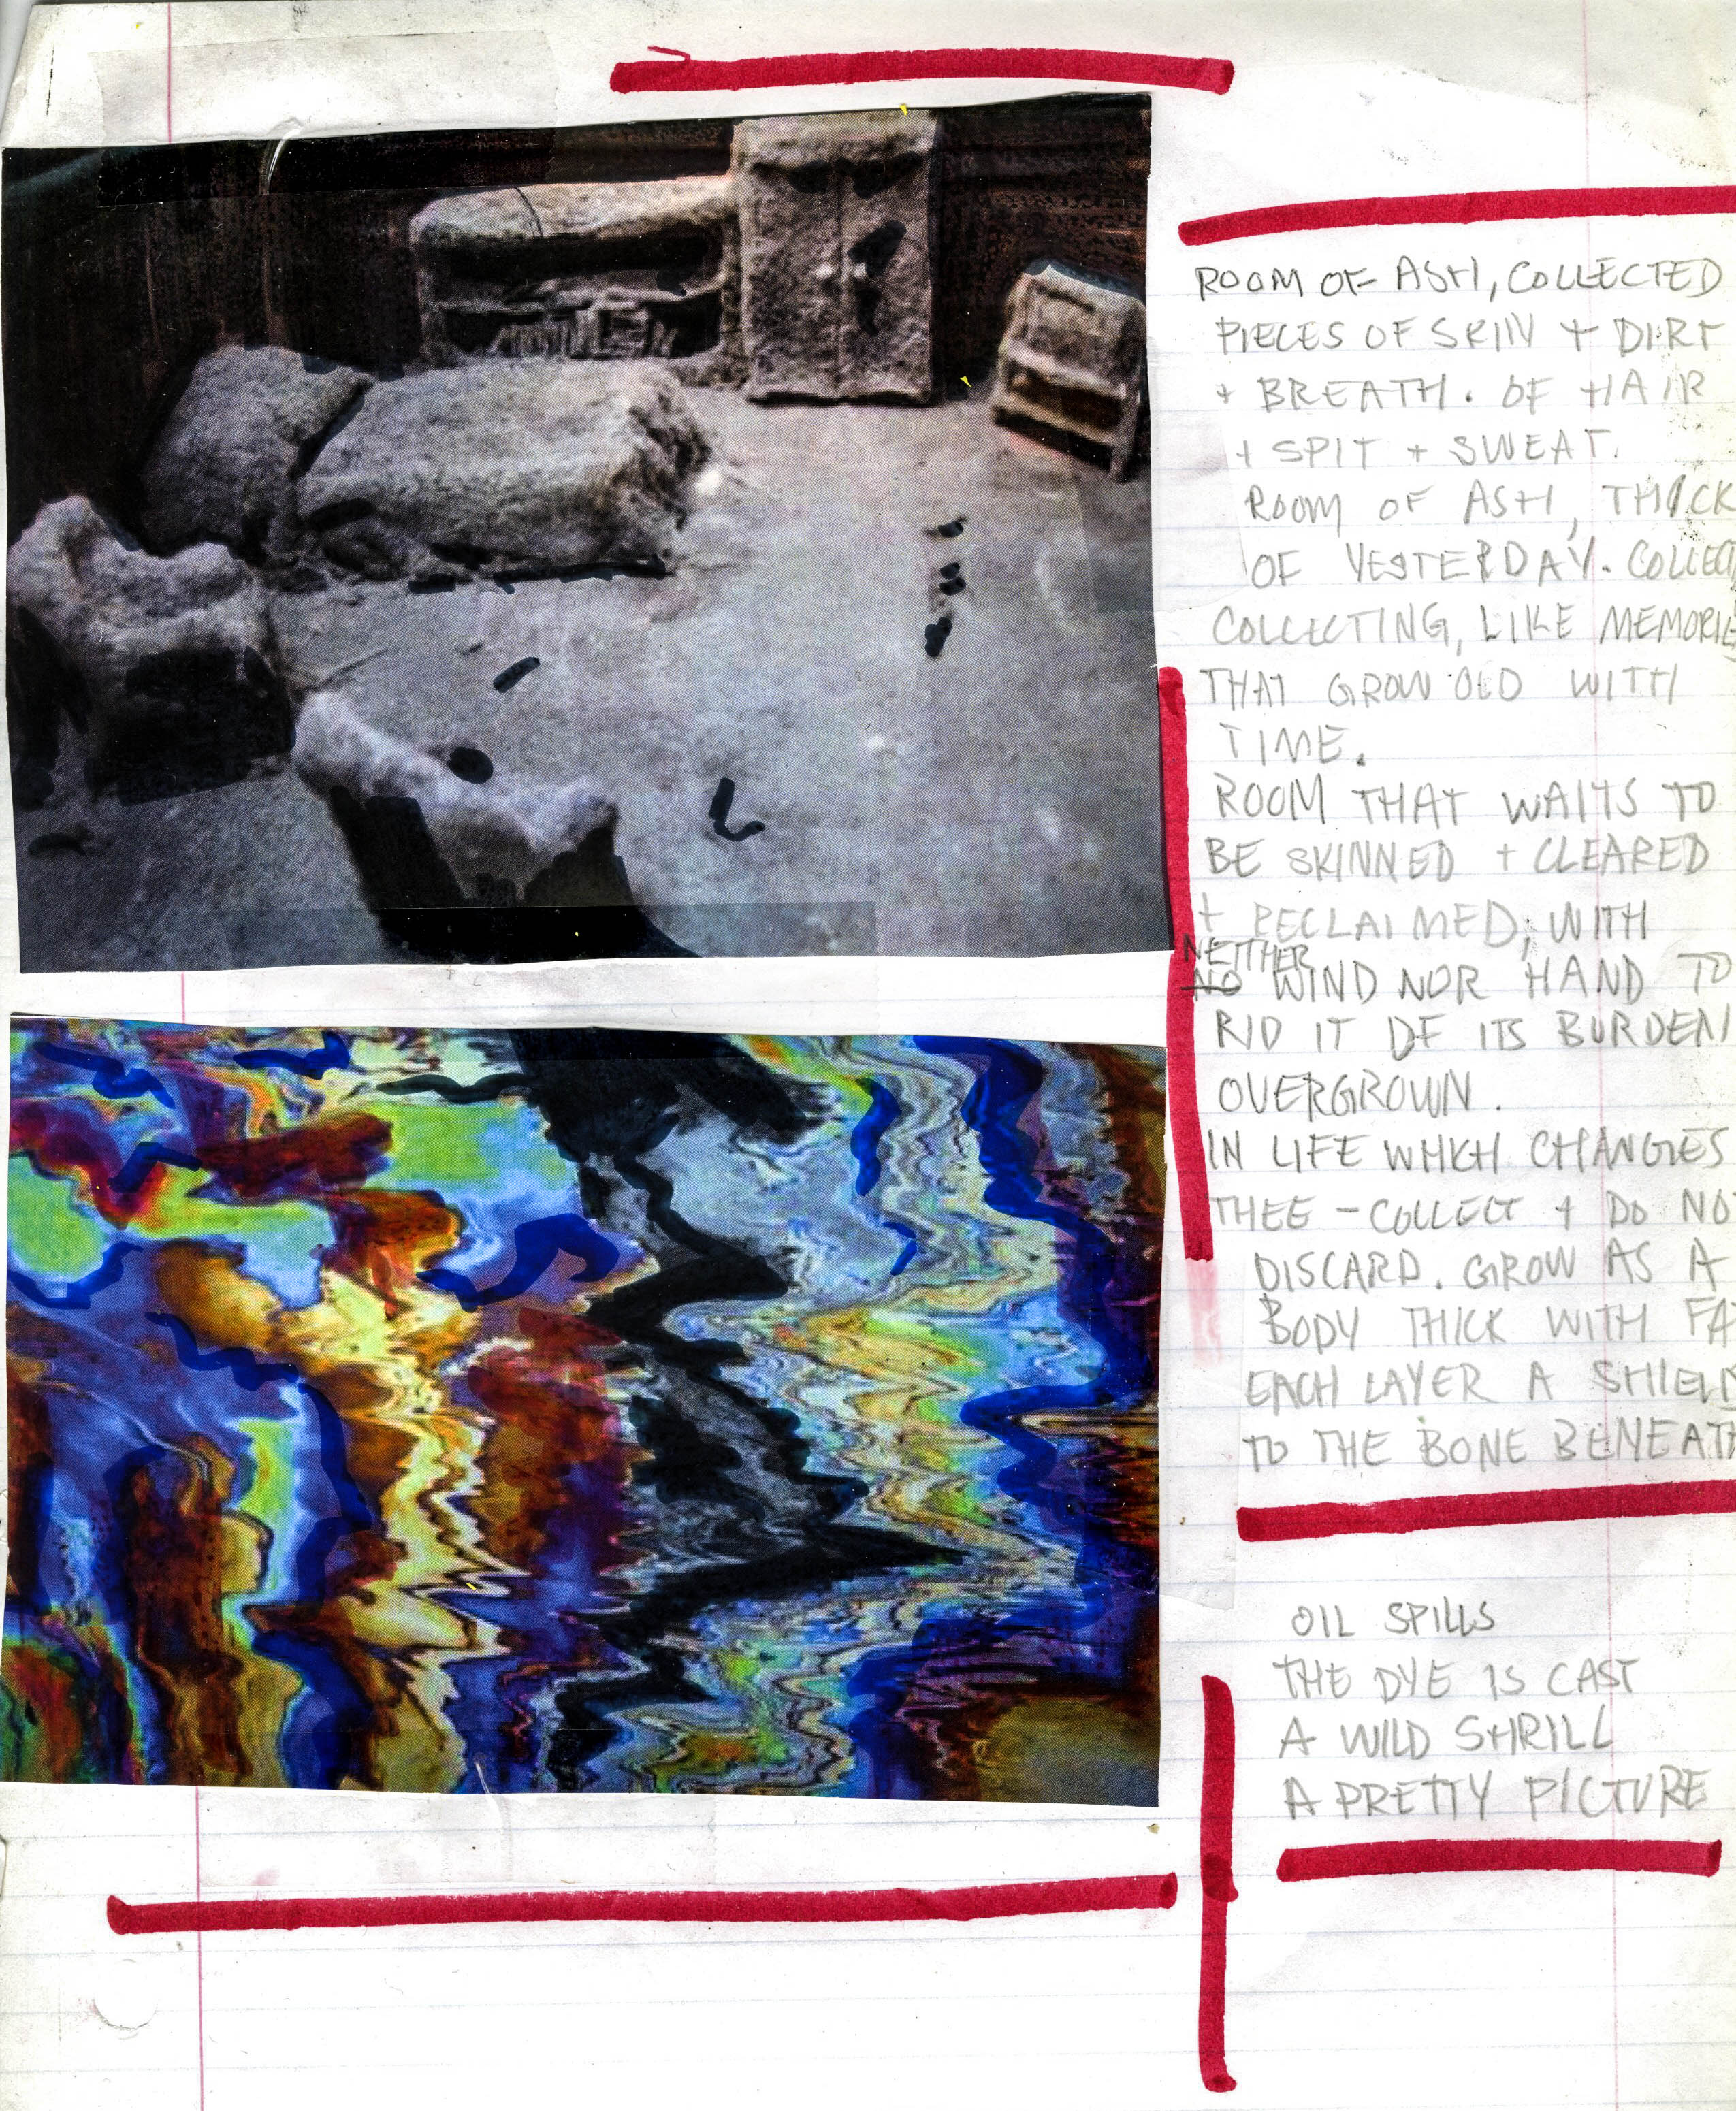 ROOM OF ASH, COLLECTED
PIECES OF SKIN + DIRT
+ BREATH. OF HAIR
+ SPIT + SWEAT.
ROOM OF ASH, THICK
OF YESTERDAY. COLLECT
COLLECTING, LIKE MEMORIE
THAT GROW OLD WITH
TIME.
ROOM THAT WAITS TO
BE SKINNED + CLEARED
+ RECLAIMED, WITH
NEITHER
NO WIND NOR HAND TO
RID IT OF ITS BURDEN
OVERGROWN.
IN LIFE WHICH CHANGES
THEE - COLLECT + DO NO
DISCARD. GROW AS A
BODY THICK WITH FA
EACH LAYER A SHIELD
TO THE BONE BENEATH
OIL SPILLS
THE DYE IS CAST
A WILD SHRILL
A PRETTY PICTURE